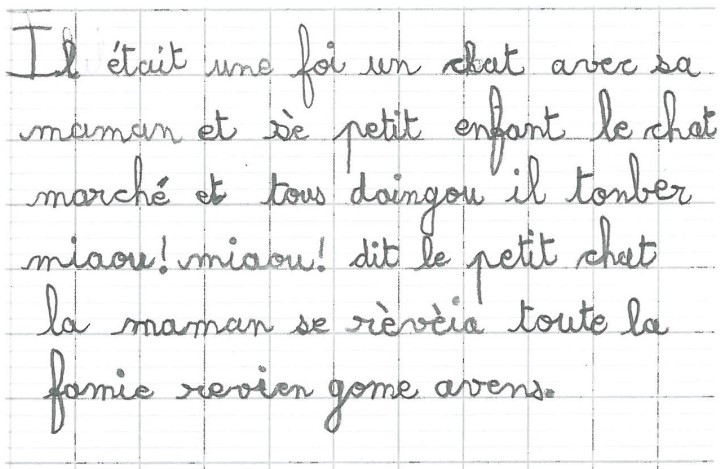 Il était une foi un chat avec sa
maman et sè petit enfant le chat
marché et tous daingou il tonber
miaou! miaou! dit le petit chat
la maman se rèvèia toute la
famie revien gome avens.